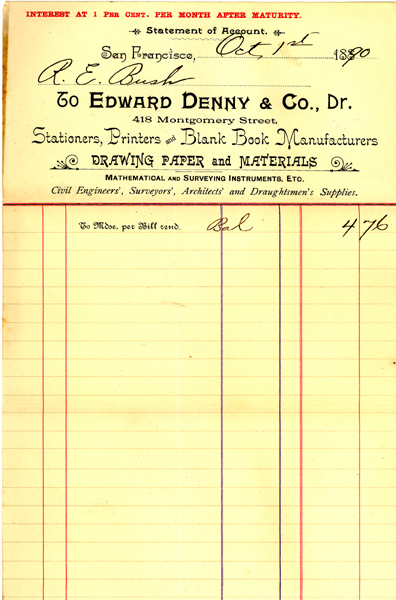 INTEREST AT 1 PER CENT. PER MONTH AFTER MATURITY.
Statement of Account.
San Francisco, Oct, 1st 1890
R. E. Bush
To EDWARD DENNY & CO., DR.
418 Montgomery Street,
Stationers, Printers and Blank Book Manufacturers
DRAWING PAPER and MATERIALS
MATHEMATICAL AND SURVEYING INSTRUMENTS, ETC.
Civil Engineers', Surveyors', Architects' and Draughtsmen's Supplies.
To Mdse. per Bill rend. Bal 4 76